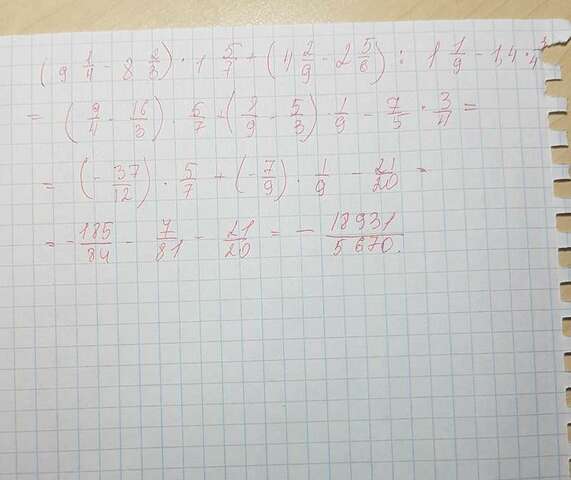 (9 1/4 - 8 2/3) · 1 5/7 + (4 2/9 - 2 5/6) : 1 1/9 - 1,4 · 3/4
= (9/4 - 16/3) · 5/7 + (8/9 - 5/3) · 1/9 - 7/5 · 3/4 =
= (- 37/12) · 5/7 + (- 7/9) · 1/9 - 21/20 =
= - 185/84 - 7/81 - 21/20 = - 18931/5670.